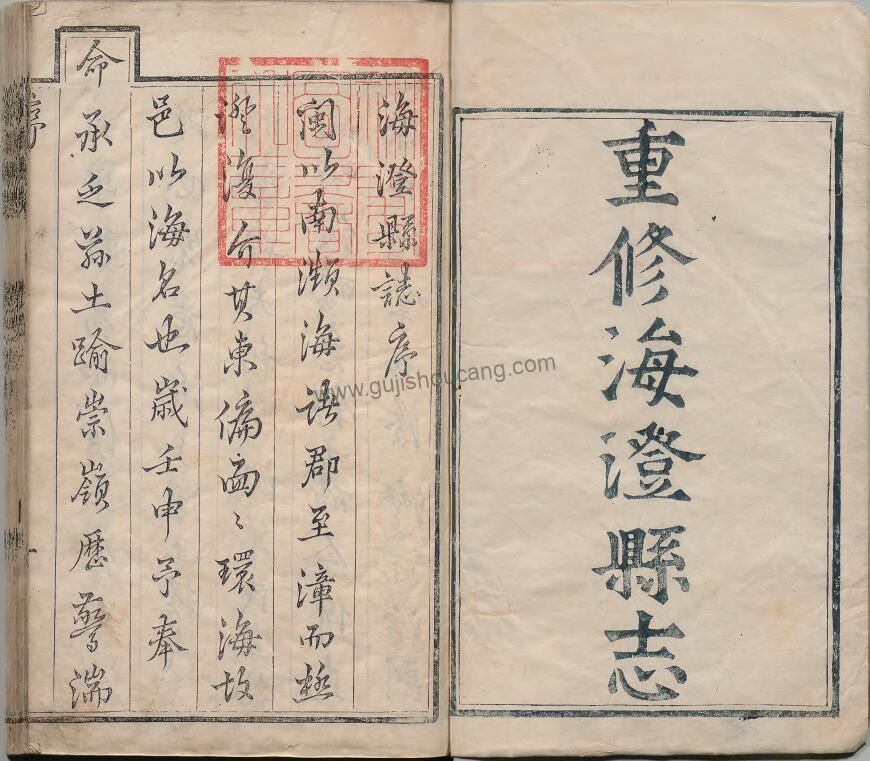 重修海澄縣志
海澄縣誌序
閩以南瀕海諸郡至漳而極
澄復介其東偏面〻環海故
邑以海名也歲壬申予奉
命承乏茲土踰崇嶺歷驚湍
序
www.gujishoucang.com